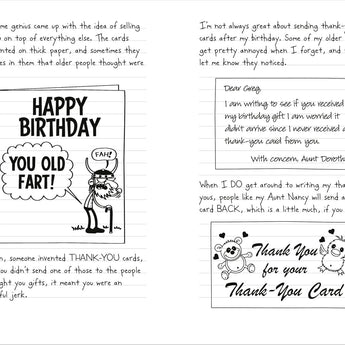 me genius came up with the idea of selling
on top of everything else. The cards
nted on thick paper, and sometimes they
es in them that older people thought were
HAPPY
BIRTHDAY
YOU OLD
FART!
FAH!
n, someone invented THANK-YOU cards,
ou didn't send one of those to the people
ught you gifts, it meant you were an
ful jerk.
I'm not always great about sending thank-
cards after my birthday. Some of my older
get pretty annoyed when I forget, and
let me know they noticed.
Dear Greg,
I am writing to see if you received
my birthday gift. I am worried it
didn't arrive since I never received a
thank-you card from you.
With concern, Aunt Doroth
When I DO get around to writing my tha
yous, people like my Aunt Nancy will send a
card BACK, which is a little much, if you
Thank You
for your
Thank-You Card